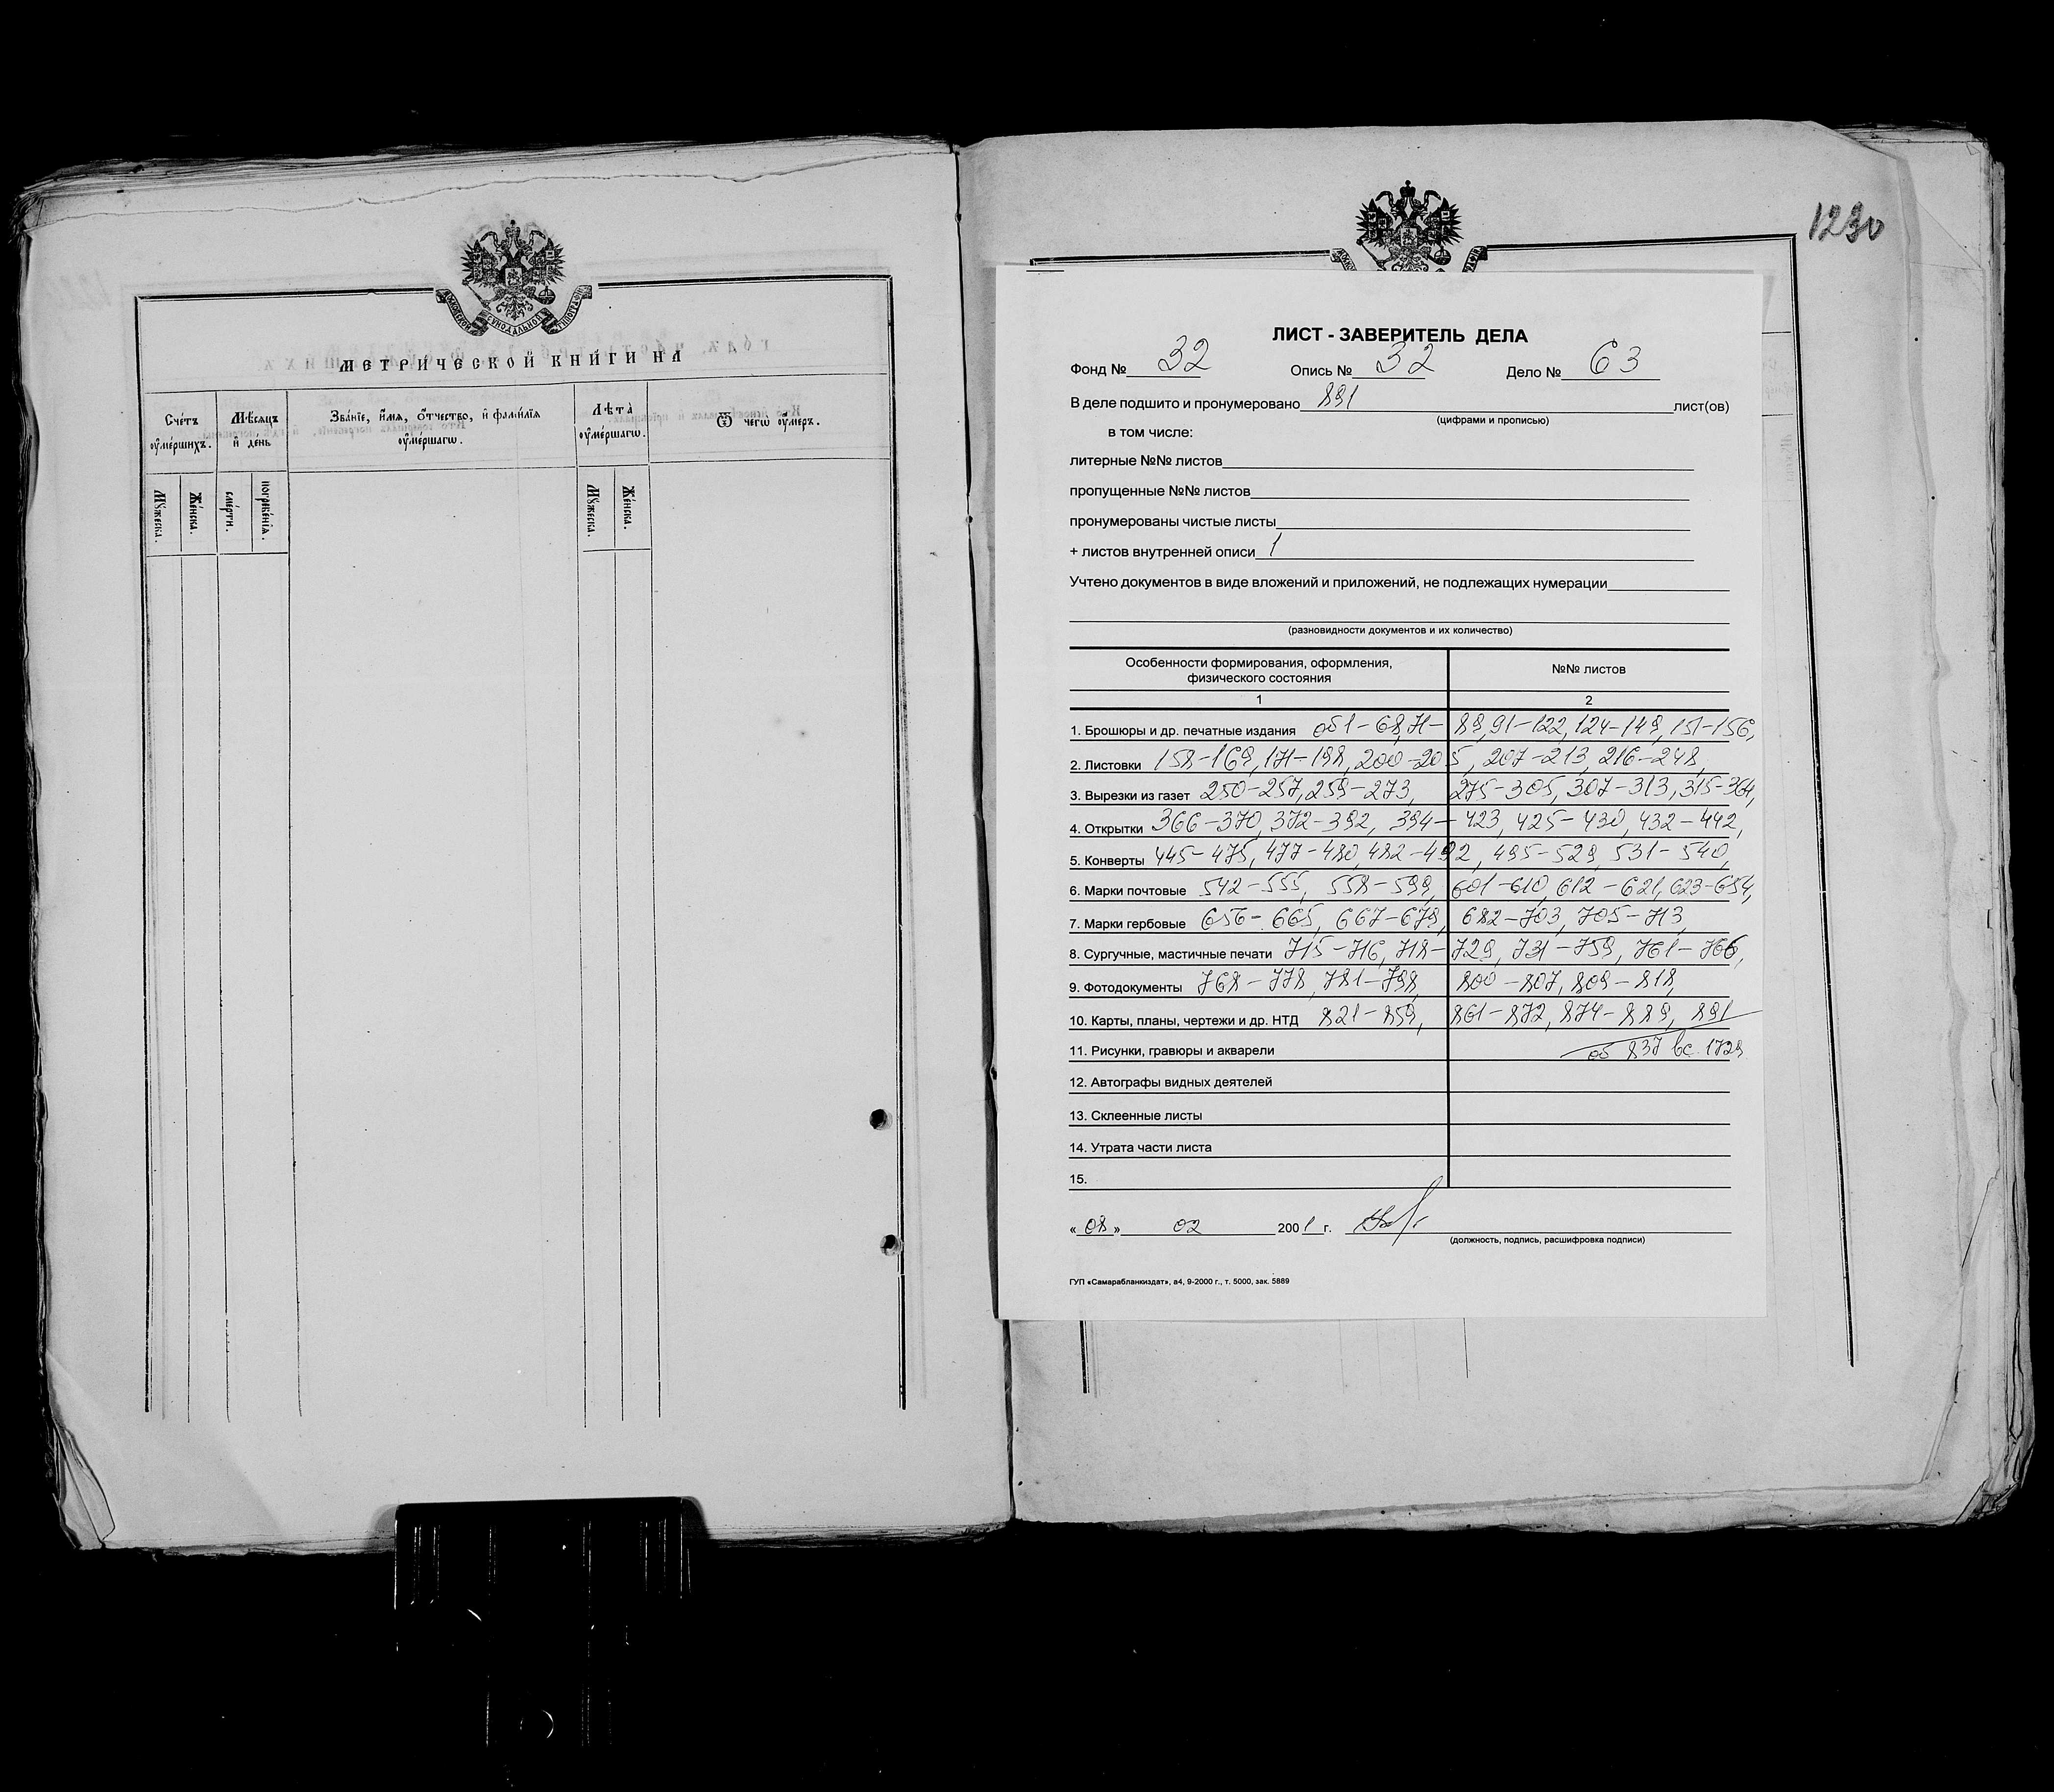 МОСКОВСКОЙ СѴНОДАЛЬНОЙ ТИПОГРАФІИ
МЕТРИЧЕСКОЙ КНИГИ НА
Сче́тъ ᲂу҆ме́ршихъ.
Мѣ́сѧцъ и҆ де́нь
Зва́нїе, и҆́мѧ, ѻ҆́тчество, и҆ фами́лїѧ ᲂу҆ме́ршагѡ.
Лѣта̀ ᲂу҆ме́ршагѡ.
Ѿ чегѡ̀ ᲂу҆́меръ.
Мꙋ́жеска.
Же́нска.
сме́рти.
погребе́нїѧ.
Мꙋ́жеска.
Же́нска.
1230
ЛИСТ - ЗАВЕРИТЕЛЬ ДЕЛА
Фонд № 32 Опись № 32 Дело № 63
В деле подшито и пронумеровано 891 лист(ов)
(цифрами и прописью)
в том числе:
литерные №№ листов
пропущенные №№ листов
пронумерованы чистые листы
+ листов внутренней описи 1
Учтено документов в виде вложений и приложений, не подлежащих нумерации
(разновидности документов и их количество)
Особенности формирования, оформления, физического состояния
№№ листов
1 2
1. Брошюры и др. печатные издания об 1-68, 71-89, 91-122, 124-149, 151-156,
2. Листовки 158-169, 171-198, 200-205, 207-213, 216-248,
3. Вырезки из газет 250-257, 259-273, 275-305, 307-313, 315-364,
4. Открытки 366-370, 372-392, 394-423, 425-430, 432-442,
5. Конверты 445-475, 477-480, 482-492, 495-529, 531-540,
6. Марки почтовые 542-555, 558-599, 601-610, 612-621, 623-654,
7. Марки гербовые 656-665, 667-679, 682-703, 705-713,
8. Сургучные, мастичные печати 715-716, 718-729, 731-759, 761-766,
9. Фотодокументы 768-778, 781-798, 800-807, 809-818,
10. Карты, планы, чертежи и др. НТД 821-859, 861-872, 874-889, 891
11. Рисунки, гравюры и акварели об 837 вс. 1729
12. Автографы видных деятелей
13. Склеенные листы
14. Утрата части листа
15.
« 08 » 02 2001 г.
(должность, подпись, расшифровка подписи)
ГУП «Самарабланкиздат», а4, 9-2000 г., т. 5000, зак. 5889